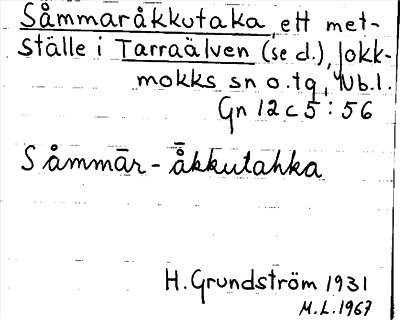 Såmmaråkkutaka, ett met-
ställe i Tarraälven (se d.), Jokk-
mokks sn o. tg, Nb.l.
Gn 12 c 5 : 56
Såmmār-å̄kkutahka
H. Grundström 1931
M.L. 1967